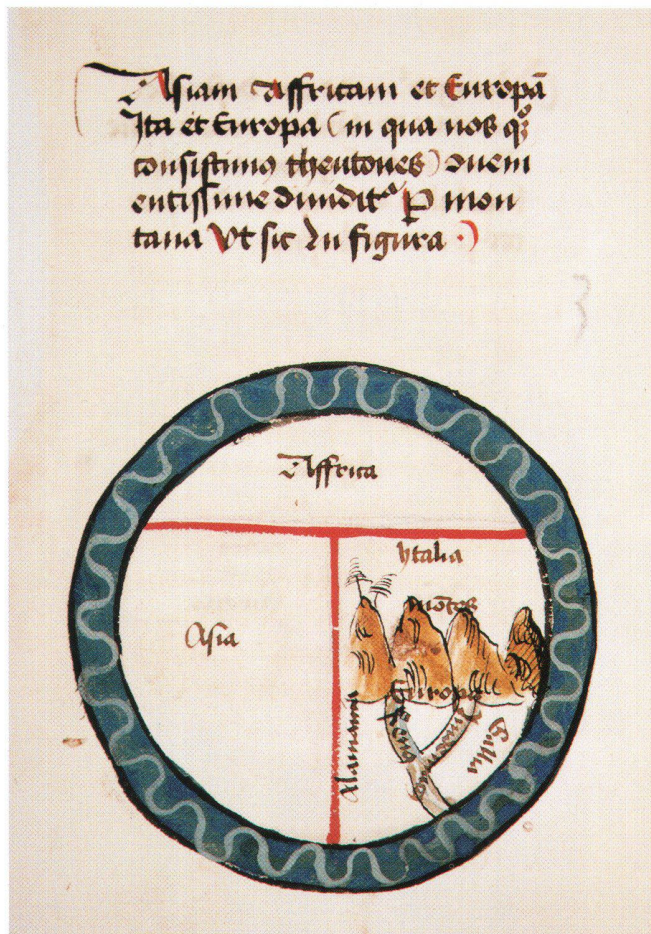 Asiam Affricam et Europā
Ita et Europa (in qua nos qꝫ
consistimus theutones) ouem
entissime diuidit᷑ ꝑ mon
tana Vt sic In figura
3
Affrica
ytalia
mōtes
Asia
Europa
Alamania
Renus
Gallia